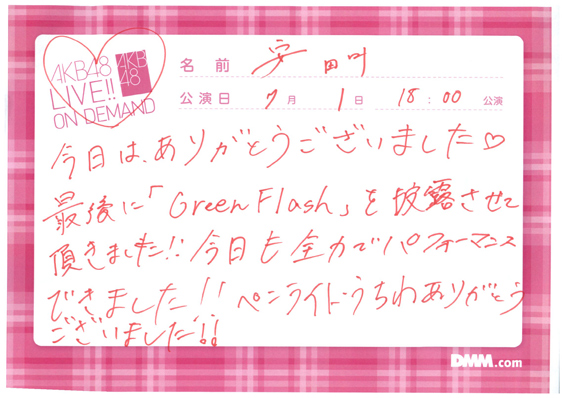 AKB48
LIVE!!
ON DEMAND
AKB
48
名前 安田叶
公演日 7月 1日 18:00 公演
今日は、ありがとうございました♡
最後に「Green Flash」を披露させて
頂きました!!今日も全力でパフォーマンス
できました!!ペンライト・うちわありがとう
ございました!!
DMM.com